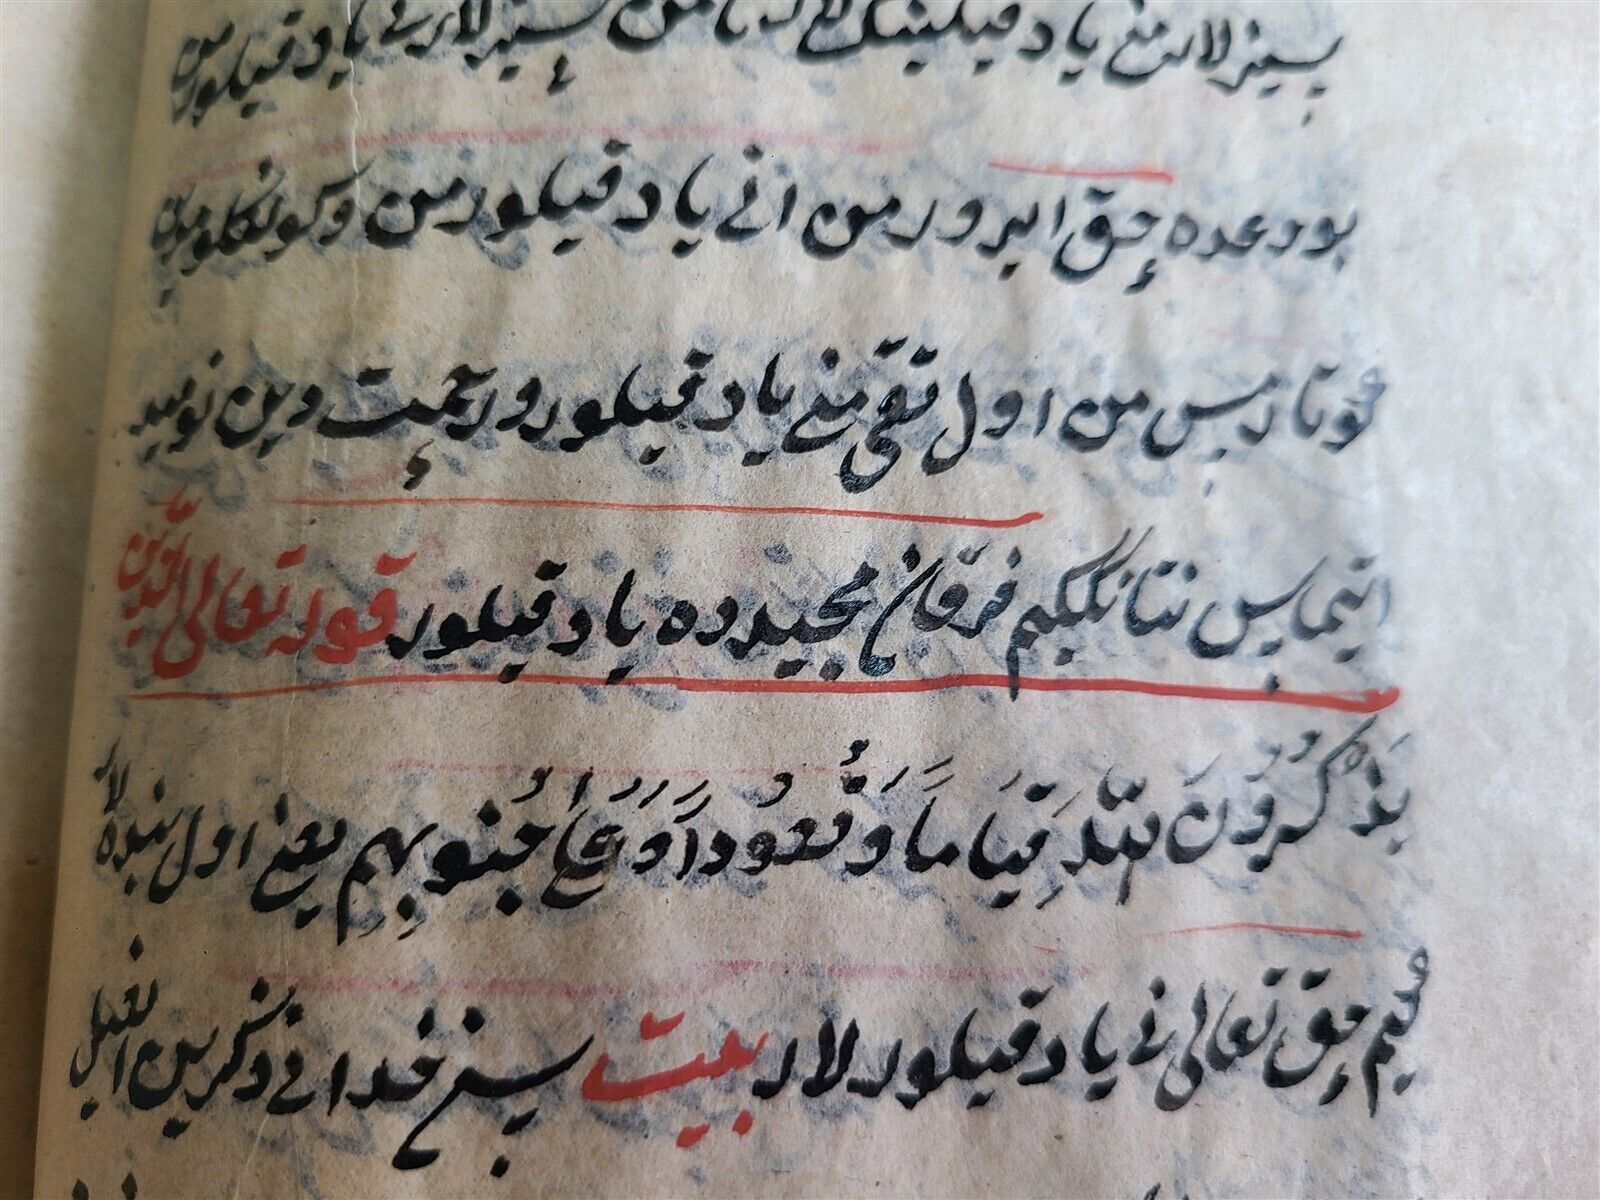 سیزلار منی یاد قیلینک لار تا من سیزلارنی یاد قیلورمن
بو وعده حق ایرور من انی یاد قیلورمن و کونکلومدین
چوتارس من اول تقی منی یاد قیلور و رحمت دین نومید
ایتماس نتانککیم فرقان مجیدده یاد قیلور قوله تعالی الذین
یذکرون الله قیاما و قعودا و علی جنوبهم یعنی اول بنده لار
کیم حق تعالی نی یاد قیلورلار بیت سیز خدانی ذکرین انکیل